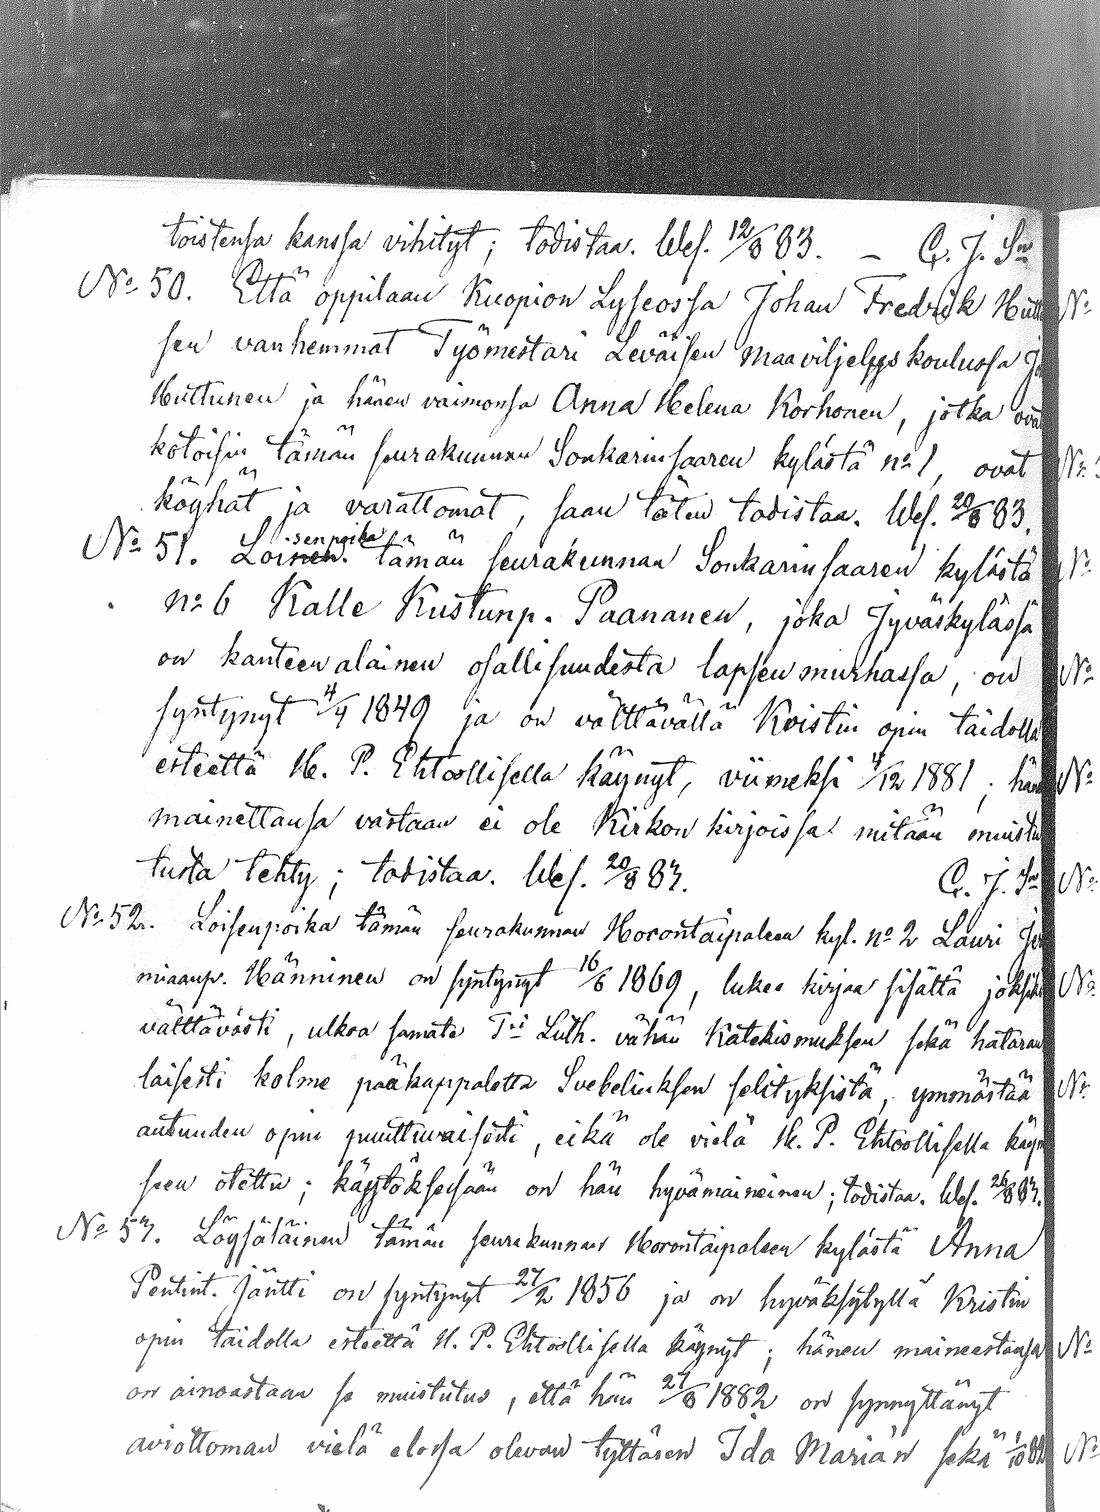 toistensa kanssa vihityt; todistaa. Wes. 12/8 83. – C. J. Sn
No 50. Että oppilaan Kuopion Lyseossa Johan Fredrik Hutt
sen vanhemmat Työmestari Leväisen maaviljelyskoulussa Jo
Huttunen ja hänen vaimonsa Anna Helena Korhonen, jotka ovat
kotoisin tämän seurakunnan Sonkarinsaaren kylästä no 1, ovat
köyhät ja varattomat, saan täten todistaa. Wes. 20/8 83.
No 51. Loisenpoika tämän seurakunnan Sonkarinsaaren kylästä
no 6 Kalle Kustunp. Paananen, joka Jyväskylässä
on kanteenalainen osallisuudesta lapsenmurhassa, on
syntynyt 4/4 1849 ja on välttävällä Kristin opin taidolla
esteettä H. P. Ehtoollisella käynyt, viimeksi 4/12 1881; hän
mainettansa vastaan ei ole Kirkonkirjoissa mitään muistu
tusta tehty; todistaa. Wes. 20/8 83. C. J. Sn
No 52. Loisenpoika tämän seurakunnan Horontaipaleen kyl. no 2 Lauri Jer
miaanp. Hänninen on syntynyt 16/6 1869, lukee kirjaa sisältä joksik
välttävästi, ulkoa samate Tri Luth. vähän Katekismuksen sekä hataran
laisesti kolme pääkappaletta Svebeliuksen selityksistä, ymmärtää
autuuden opin puuttuvaisesti, eikä ole vielä H. P. Ehtoollisella käym
seen otettu; käytöksessään on hän hyvämaineinen; todistaa. Wes. 26/8 83.
No 53. Löysäläinen tämän seurakunnan Horontaipaleen kylästä Anna
Pentint. Jäntti on syntynyt 27/2 1856 ja on hyväksytyllä Kristin
opin taidolla esteettä H. P. Ehtoollisella käynyt; hänen maineestansa
on ainoastaan se muistutus, että hän 27/8 1882 on synnyttänyt
aviottoman vielä elossa olevan tyttären Ida Marian sekä 1/10 82
No
No
No
No
No
No
No
No
No
No